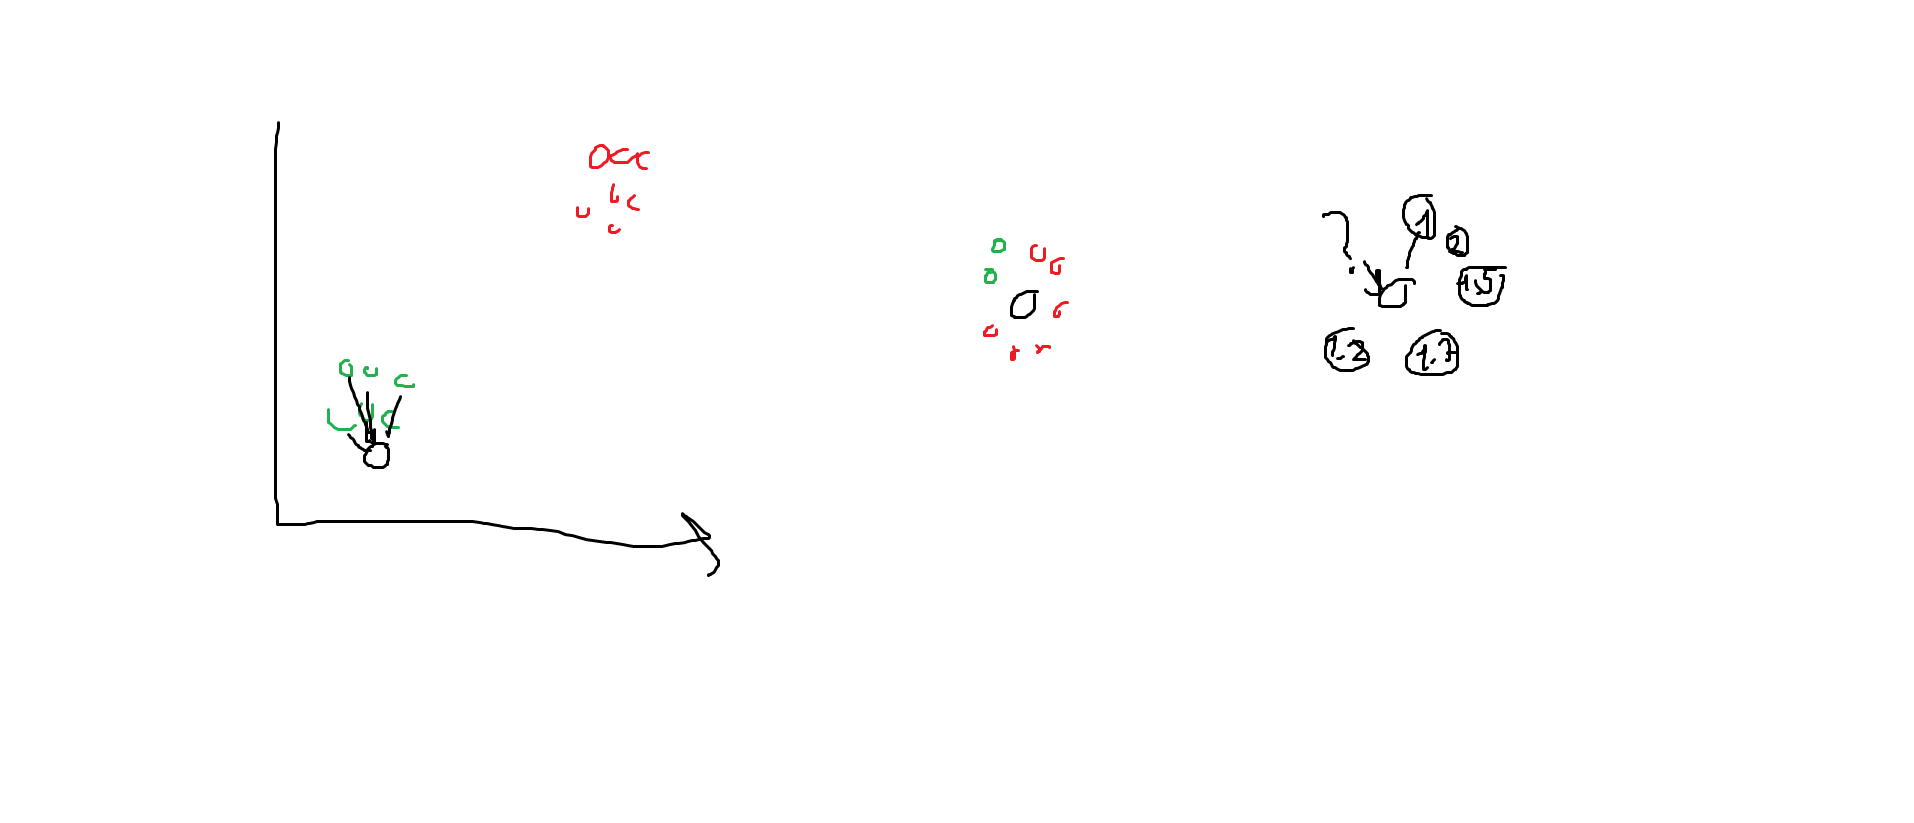 ?
1
2
1.5
1.2
1.7